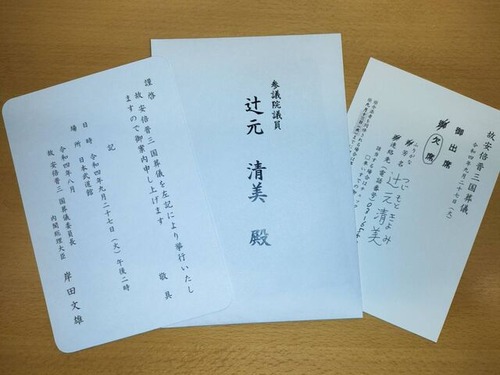 謹啓
故 安倍晋三 国葬儀を左記により挙行いたし
ますので御案内申し上げます
敬具
記
日時 令和四年九月二十七日（火）午後二時
場所 日本武道館
令和四年八月
故 安倍晋三 国葬儀委員長
内閣総理大臣 岸田文雄
参議院議員
辻元 清美 殿
故 安倍晋三 国葬儀
令和四年九月二十七日（火）
御出席
御欠席
ふりがな つじもと きよみ
御芳名 辻元清美
御連絡先（電話番号）